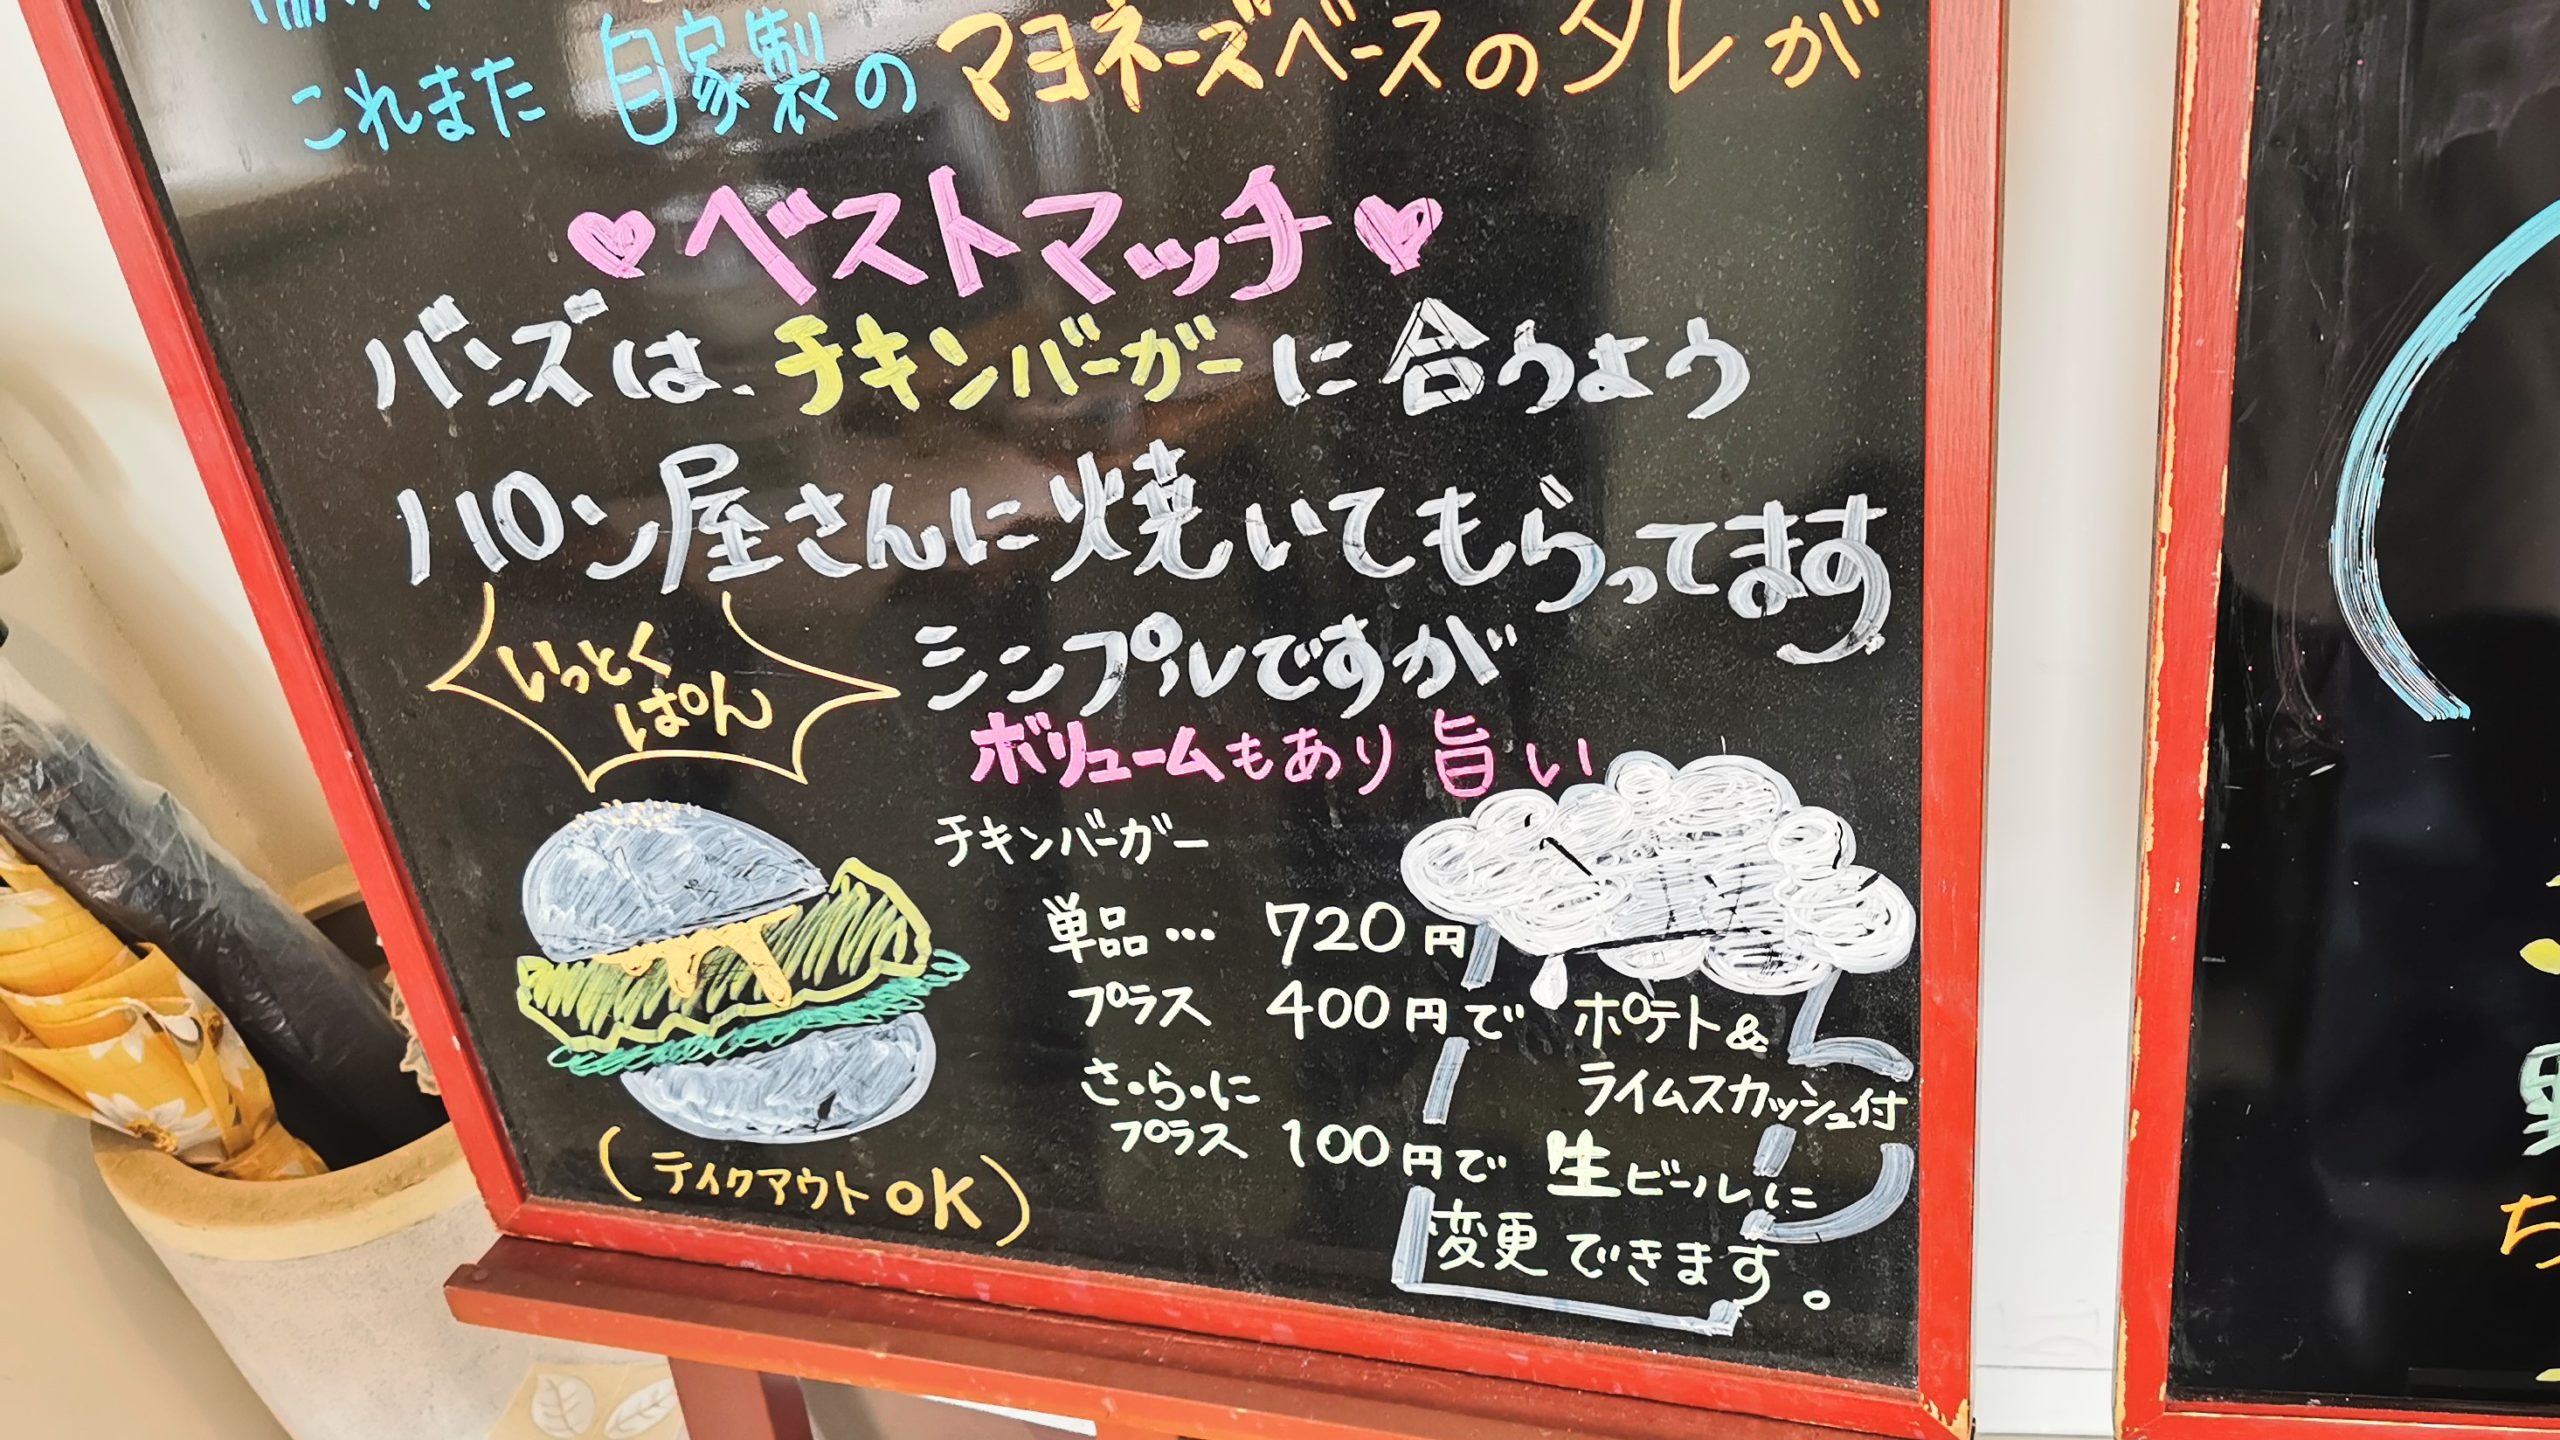 これまた 自家製の マヨネーズベースのタレが
♥ベストマッチ♥
バンズは、チキンバーガーに合うよう
パン屋さんに焼いてもらってます
いっとく
ぱん
シンプルですが
ボリュームもあり 旨い
チキンバーガー
単品… 720円
プラス 400円で ポテト&
ライムスカッシュ付
さ・ら・に
プラス 100円で 生ビールに
変更できます。
(テイクアウトOK)
ち